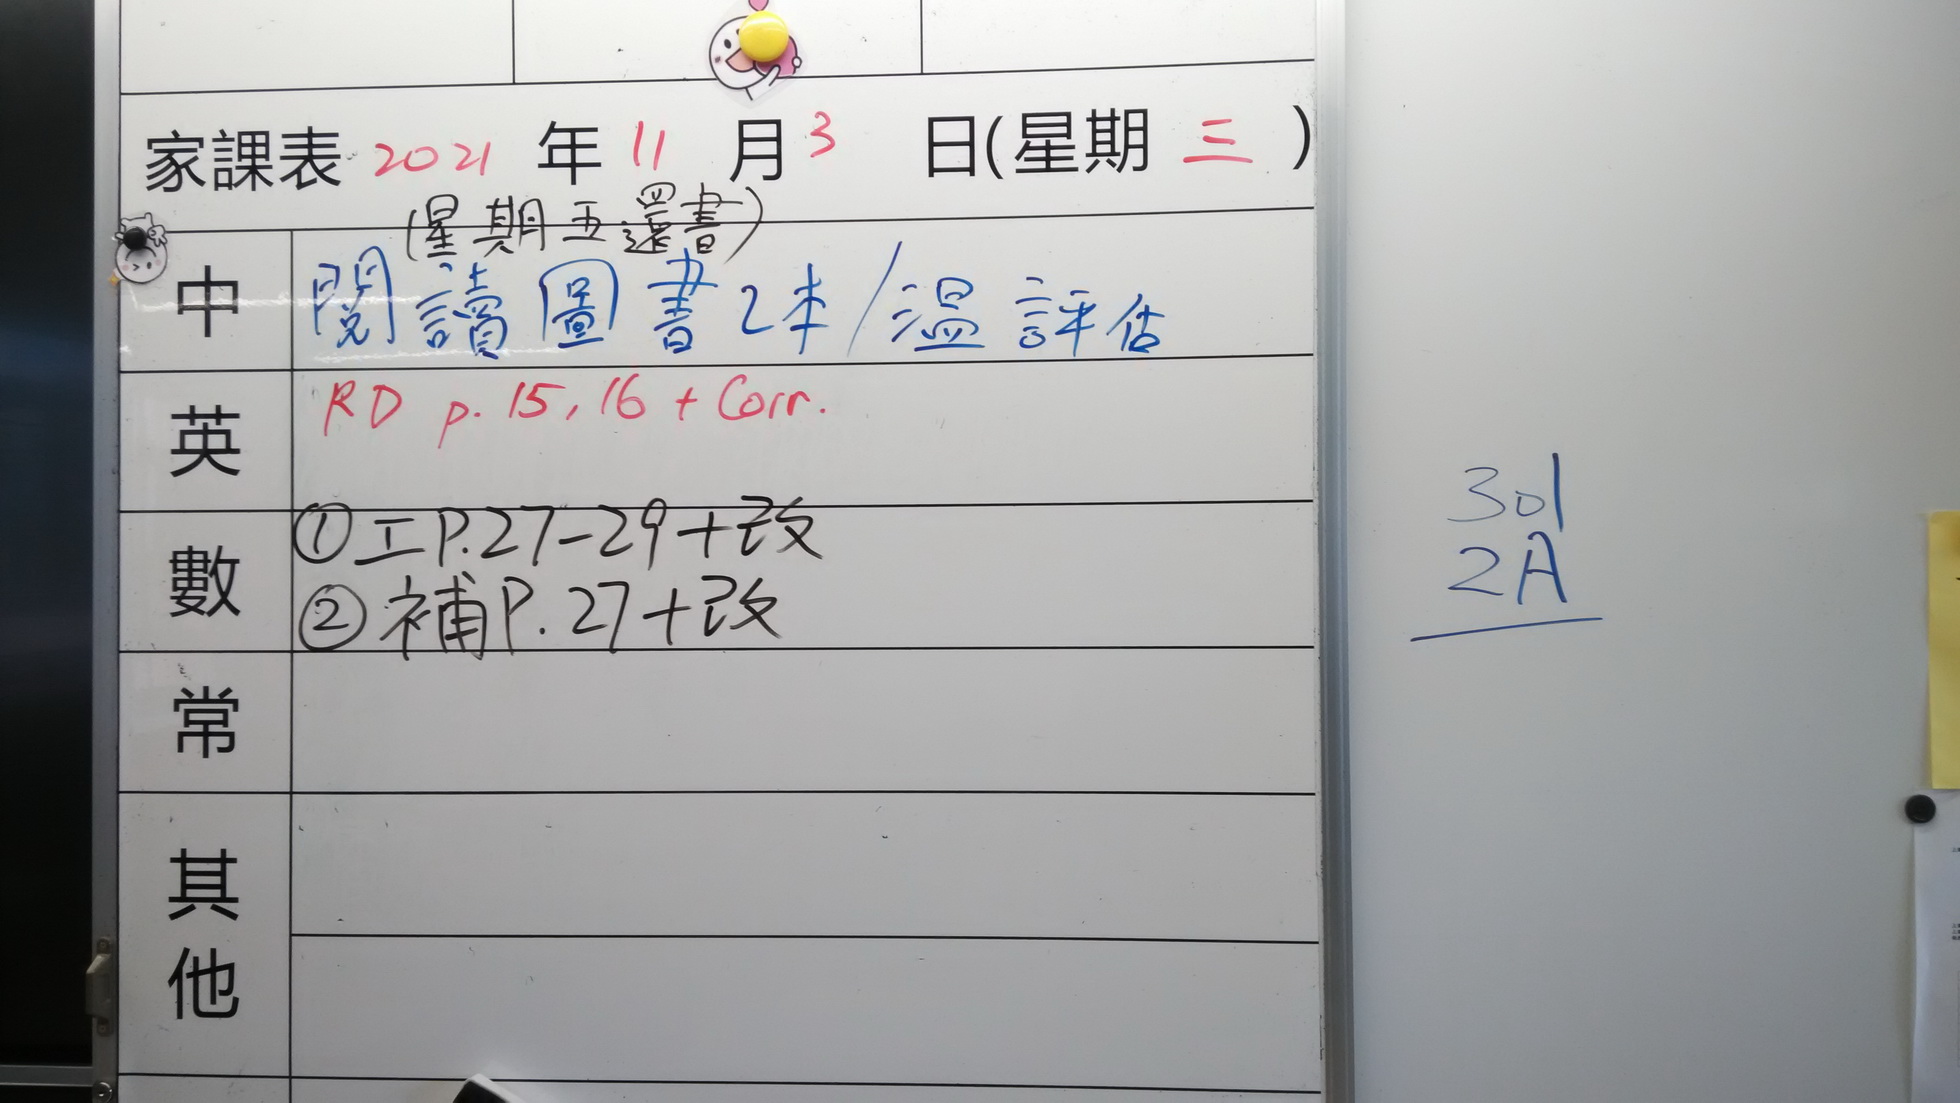 家課表 2021 年 11 月 3 日(星期 三 )
(星期五還書)
中 閱讀圖書2本/溫評估
英 RD p.15,16 + Corr.
數 ①工P.27-29+改
②補P.27+改
常
其他
301
2A